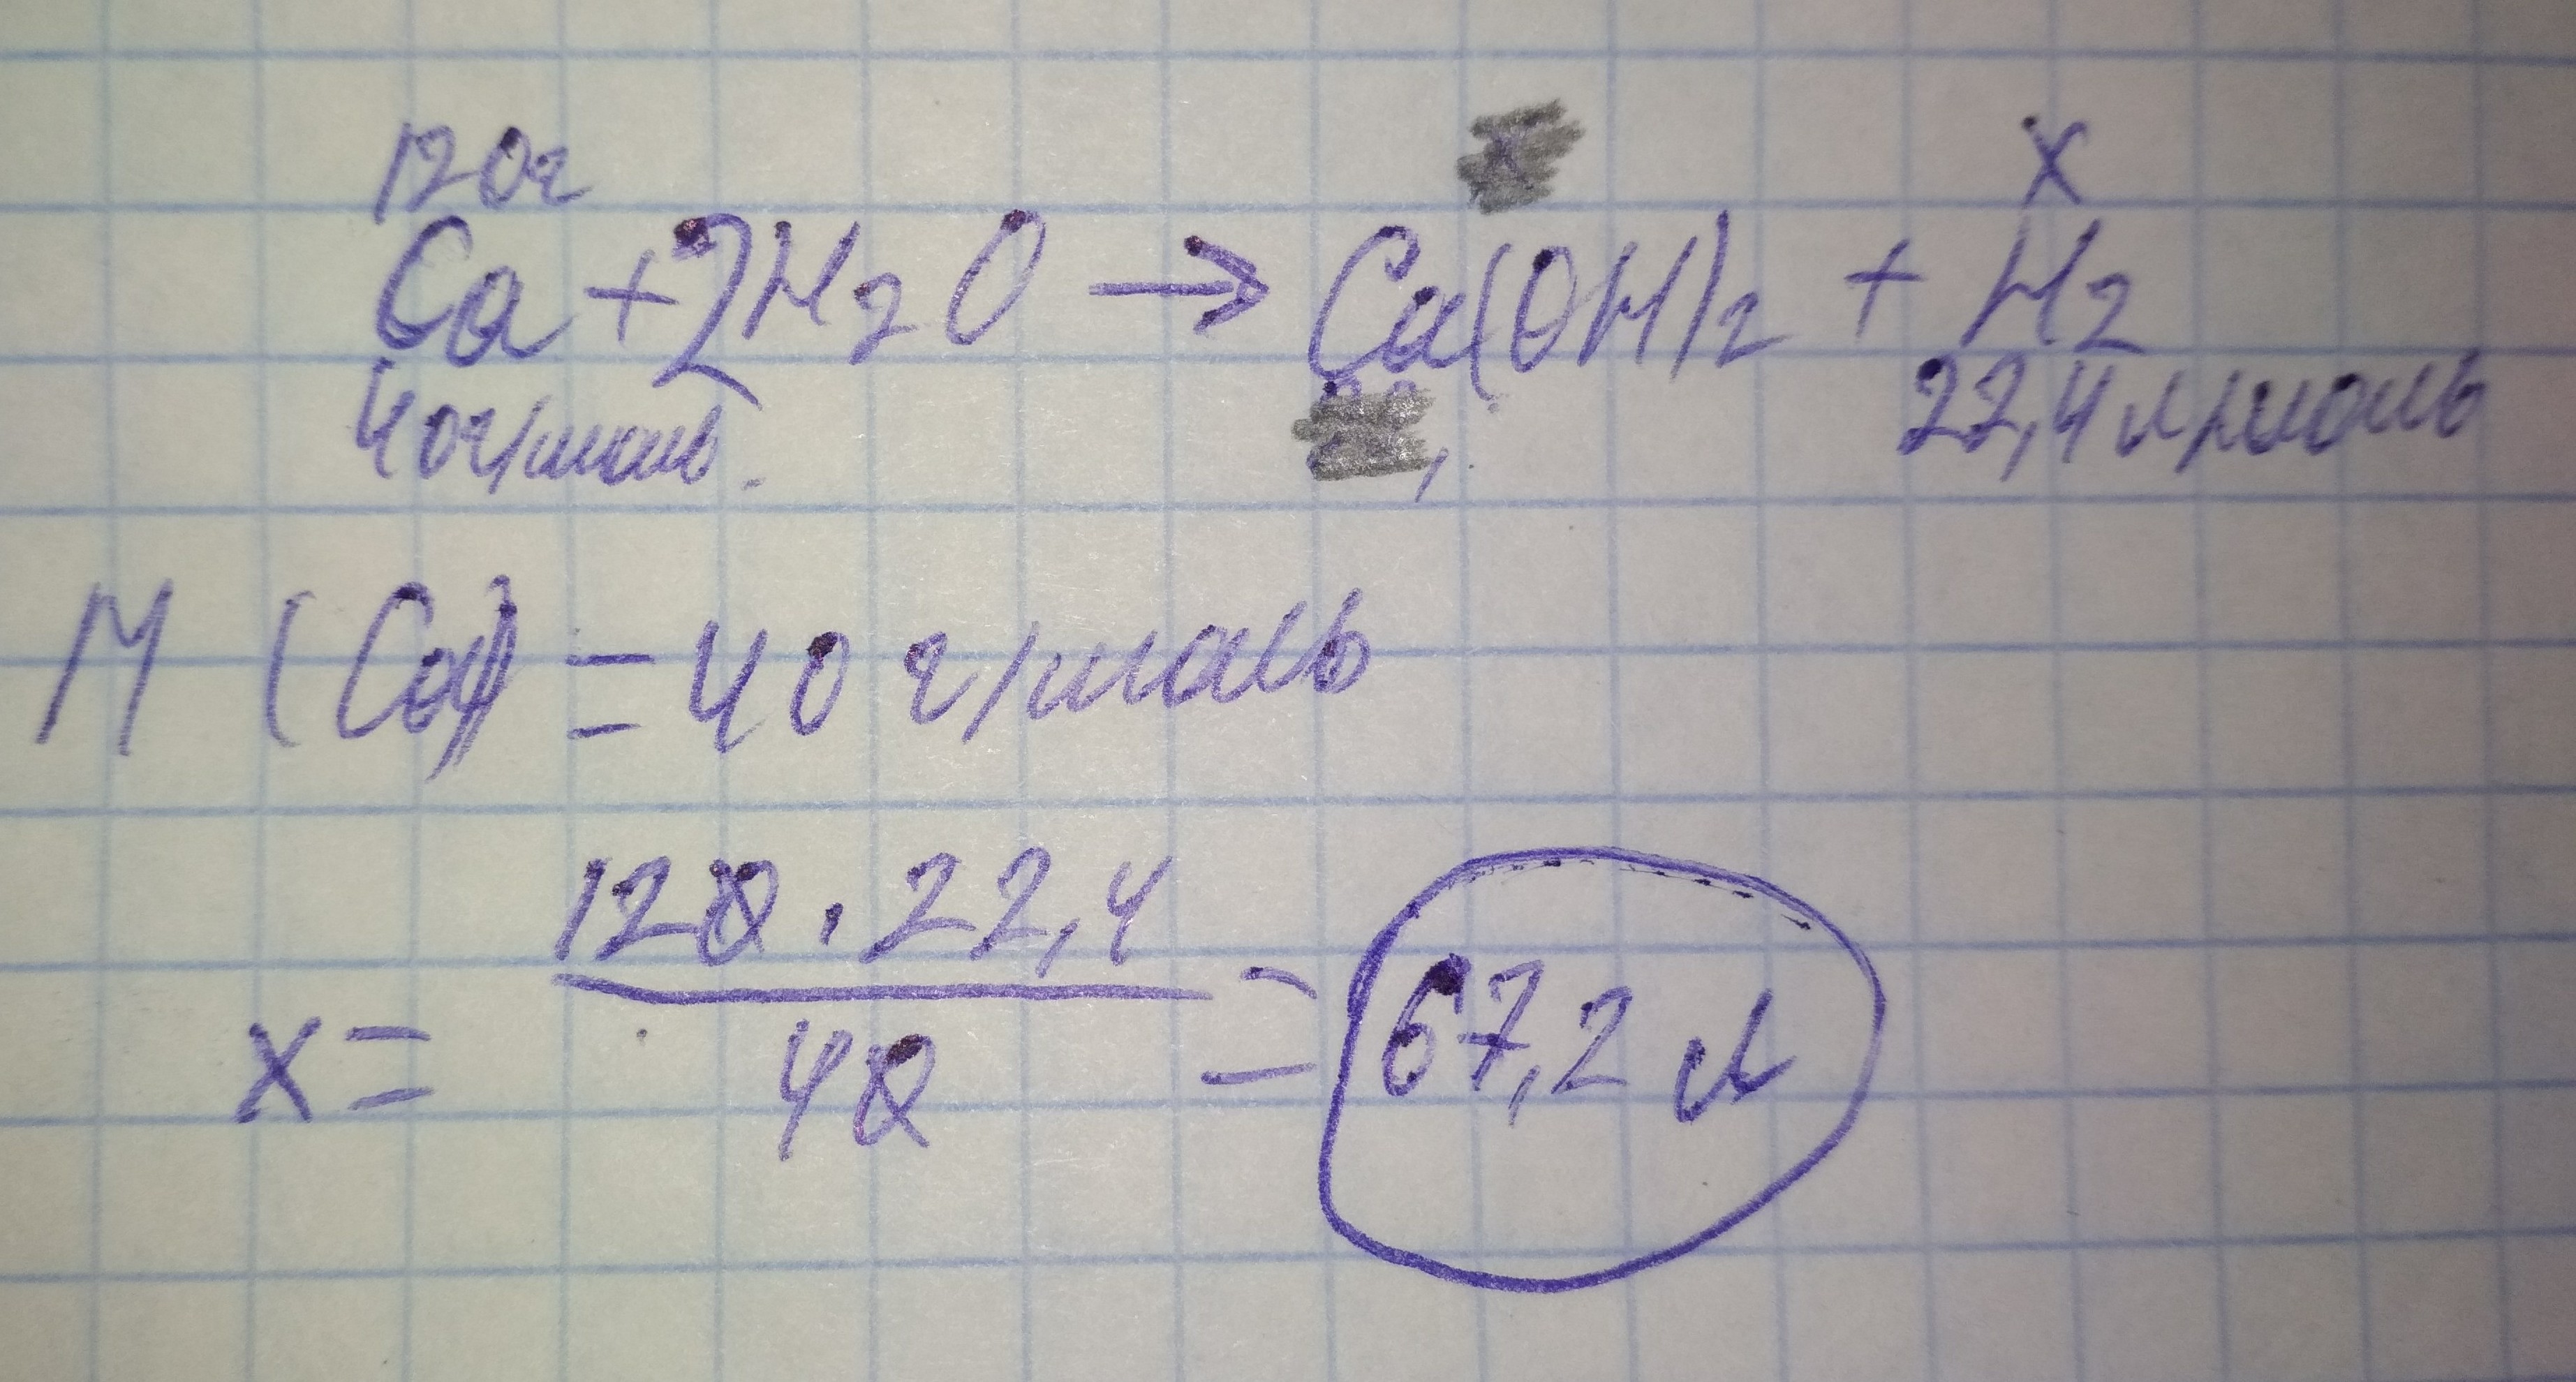 120г x
Ca + 2H₂O → Ca(OH)₂ + H₂
40г/моль. 22,4 л/моль
M (Ca) = 40 г/моль
120 · 22,4
x = = 67,2 л
40